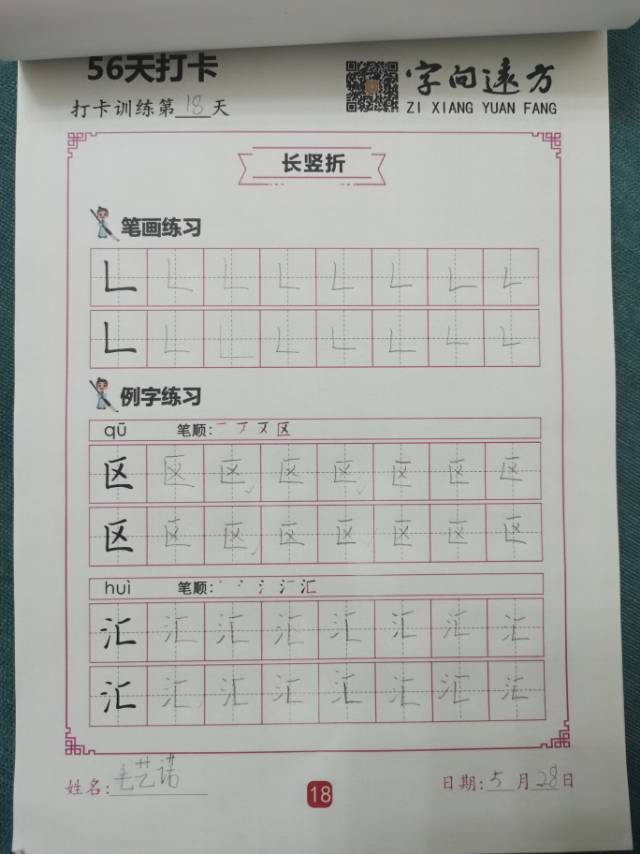 56天打卡
字向远方
打卡训练第18天
ZI XIANG YUAN FANG
长竖折
笔画练习
𠃊 𠃊 𠃊 𠃊 𠃊 𠃊 𠃊 𠃊
𠃊 𠃊 𠃊 𠃊 𠃊 𠃊 𠃊 𠃊
例字练习
qū 笔顺: 一 丆 又 区
区 区 区 区 区 区 区 区
区 区 区 区 区 区 区 区
huì 笔顺: 丶 冫 氵 汇
汇 汇 汇 汇 汇 汇 汇 汇
汇 汇 汇 汇 汇 汇 汇 汇
姓名: 毛艺诺
18
日期: 5月28日